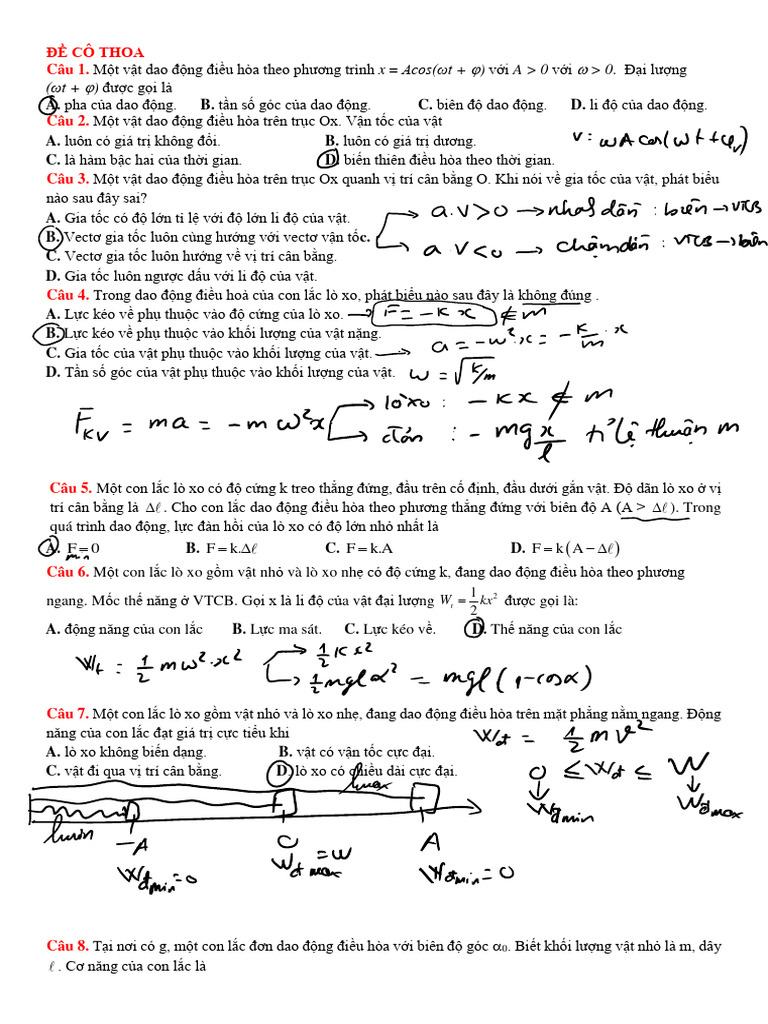 ĐỀ CÔ THOA
Câu 1. Một vật dao động điều hòa theo phương trình x = Acos(ωt + φ) với A > 0 với ω > 0. Đại lượng
(ωt + φ) được gọi là
A. pha của dao động. B. tần số góc của dao động. C. biên độ dao động. D. li độ của dao động.
Câu 2. Một vật dao động điều hòa trên trục Ox. Vận tốc của vật
A. luôn có giá trị không đổi. B. luôn có giá trị dương.
v = ωA cos(ωt + φv)
C. là hàm bậc hai của thời gian. D. biến thiên điều hòa theo thời gian.
Câu 3. Một vật dao động điều hòa trên trục Ox quanh vị trí cân bằng O. Khi nói về gia tốc của vật, phát biểu
nào sau đây sai?
A. Gia tốc có độ lớn tỉ lệ với độ lớn li độ của vật.
a.v>0 → nhanh dần : biên → VTCB
B. Vectơ gia tốc luôn cùng hướng với vectơ vận tốc.
a v<0 → chậm dần : VTCB → biên
C. Vectơ gia tốc luôn hướng về vị trí cân bằng.
D. Gia tốc luôn ngược dấu với li độ của vật.
Câu 4. Trong dao động điều hoà của con lắc lò xo, phát biểu nào sau đây là không đúng .
A. Lực kéo về phụ thuộc vào độ cứng của lò xo. → F = -k x ∉ m
B. Lực kéo về phụ thuộc vào khối lượng của vật nặng.
C. Gia tốc của vật phụ thuộc vào khối lượng của vật. → a = -ω².x = -k/m . x
D. Tần số góc của vật phụ thuộc vào khối lượng của vật. ω = √k/m
F_KV = ma = -mω²x
→ lò xo : -kx ∉ m
→ đơn : -mg x/l tỉ lệ thuận m
Câu 5. Một con lắc lò xo có độ cứng k treo thẳng đứng, đầu trên cố định, đầu dưới gắn vật. Độ dãn lò xo ở vị
trí cân bằng là Δℓ . Cho con lắc dao động điều hòa theo phương thẳng đứng với biên độ A (A > Δℓ ). Trong
quá trình dao động, lực đàn hồi của lò xo có độ lớn nhỏ nhất là
A. F = 0 B. F = k.Δℓ C. F = k.A D. F = k(A − Δℓ)
min
Câu 6. Một con lắc lò xo gồm vật nhỏ và lò xo nhẹ có độ cứng k, đang dao động điều hòa theo phương
ngang. Mốc thế năng ở VTCB. Gọi x là li độ của vật đại lượng Wt = 1/2 kx² được gọi là:
A. động năng của con lắc B. Lực ma sát. C. Lực kéo về. D. Thế năng của con lắc
Wt = 1/2 mω².x²
→ 1/2 kx²
→ 1/2 mglα² = mgl(1-cosα)
Câu 7. Một con lắc lò xo gồm vật nhỏ và lò xo nhẹ, đang dao động điều hòa trên mặt phẳng nằm ngang. Động
năng của con lắc đạt giá trị cực tiểu khi
Wđ = 1/2 mv²
A. lò xo không biến dạng. B. vật có vận tốc cực đại.
C. vật đi qua vị trí cân bằng. D. lò xo có chiều dài cực đại.
0 ≤ Wđ ≤ W
lmax
Wđmin Wđmax
lmin
-A O A
Wđmin=0 Wđmax = W Wđmin=0
Câu 8. Tại nơi có g, một con lắc đơn dao động điều hòa với biên độ góc α₀. Biết khối lượng vật nhỏ là m, dây
ℓ . Cơ năng của con lắc là